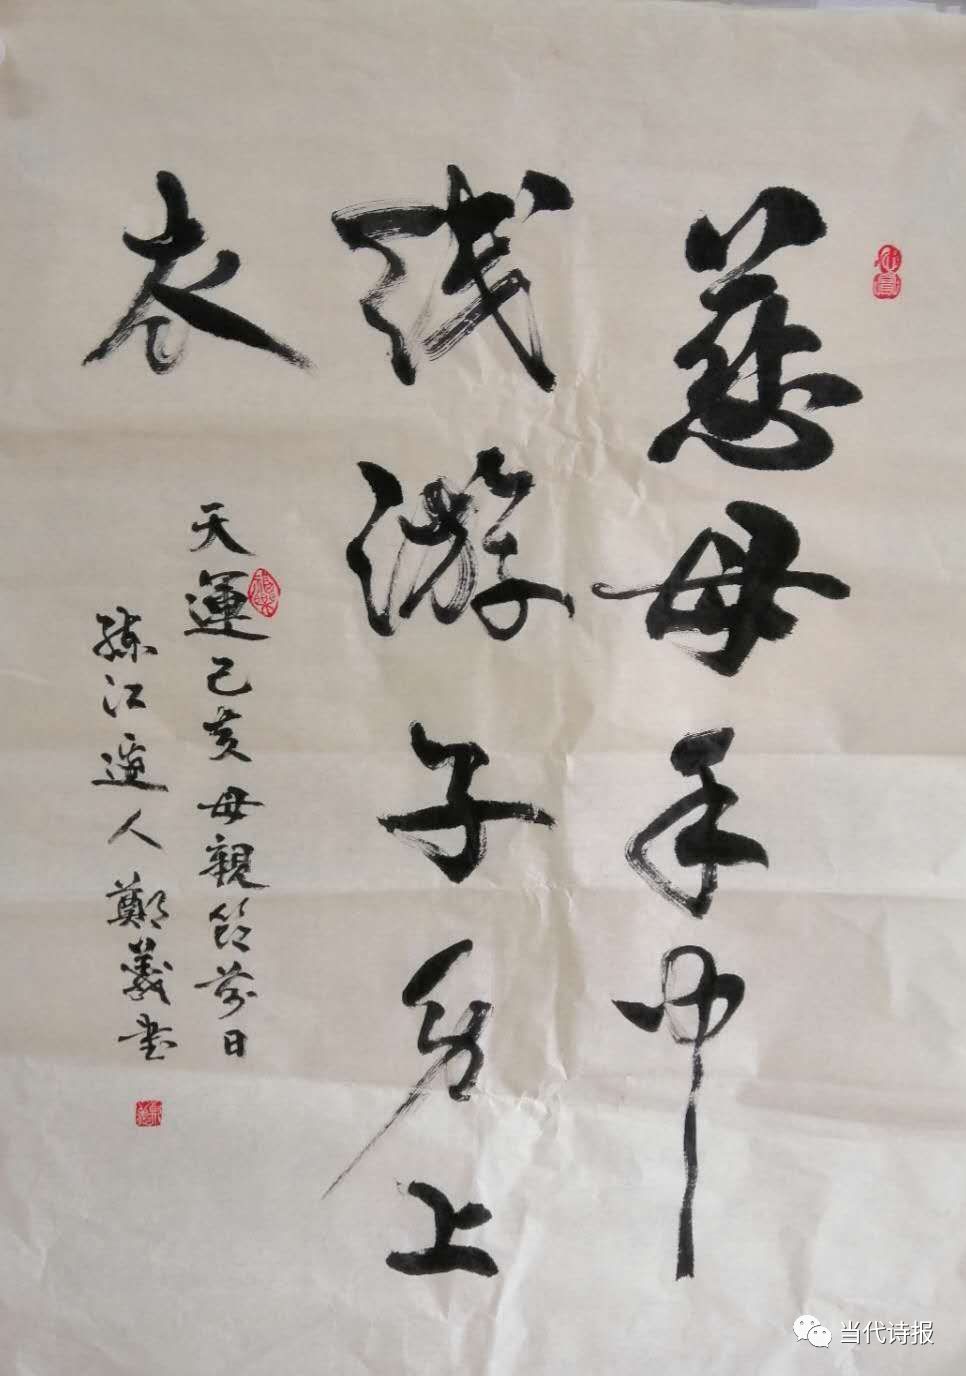 慈母手中
线游子身上
衣
天運己亥母親節前日
練江逸人鄭義書
当代诗报